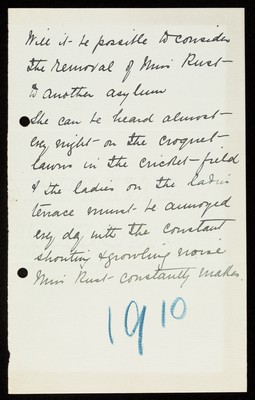 Will it be possible to consider
the removal of Miss Rust
to another asylum
She can be heard almost
evy night on the croquet
lawns in the cricket-field
& the ladies on the ladies
terrace must be annoyed
evy day with the constant
shouting & growling noise
Miss Rust constantly makes.
1910